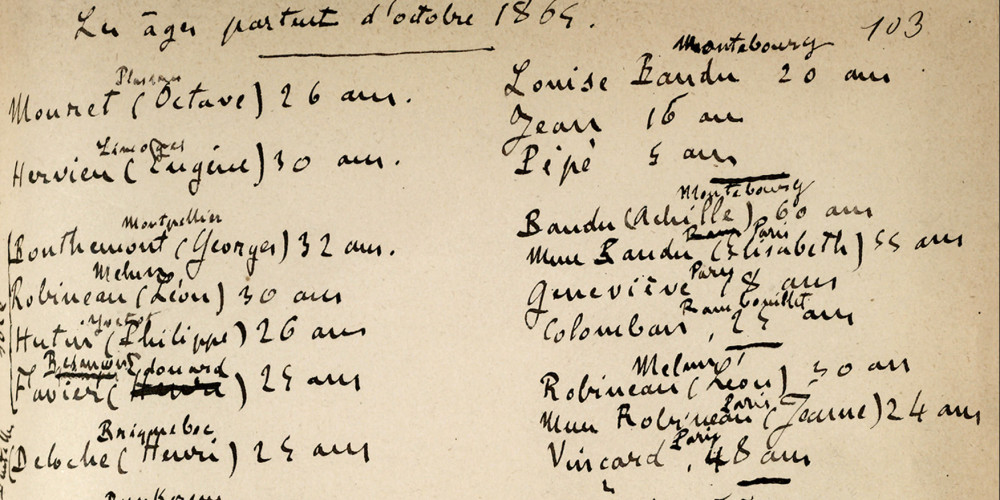 Les âges partent d'octobre 1864.
103
Plassans
Mouret (Octave) 26 ans.
Limoges
Hervieu (Eugène) 30 ans.
Montpellier
Bouthemont (Georges) 32 ans.
Melun
Robineau (Léon) 30 ans
Yvetot
Hutin (Philippe) 26 ans
Besançon Edouard
Favier (Henri) 25 ans
Bricquebec
Deloche (Henri) 25 ans
Montebourg
Louise Baudu 20 ans
Jean 16 ans
Pépé 5 ans
Montebourg
Baudu (Achille) 60 ans
Paris
Mme Baudu (Elisabeth) 55 ans
Paris
Geneviève 18 ans
Rambouillet
Colomban, 25 ans
Melun
Robineau (Léon) 30 ans
Paris
Mme Robineau (Jeanne) 24 ans
Paris
Vinçard, 48 ans